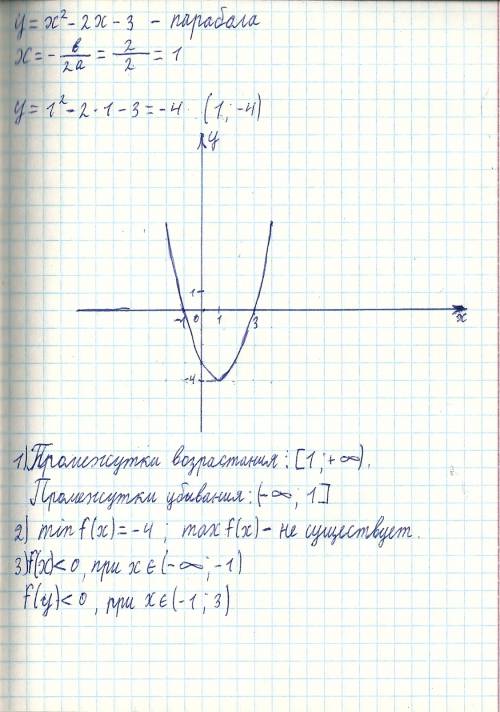 y = x² - 2x - 3 - парабола
x = -в/2a = 2/2 = 1
y = 1² - 2·1 - 3 = -4 (1; -4)
y
1
-1 0 1 3 x
-4
1) Промежутки возрастания: [1; +∞).
Промежутки убывания: (-∞; 1]
2) min f(x) = -4; max f(x) - не существует.
3) f(x) < 0, при x ∈ (-∞; -1)
f(y) < 0, при x ∈ (-1; 3)